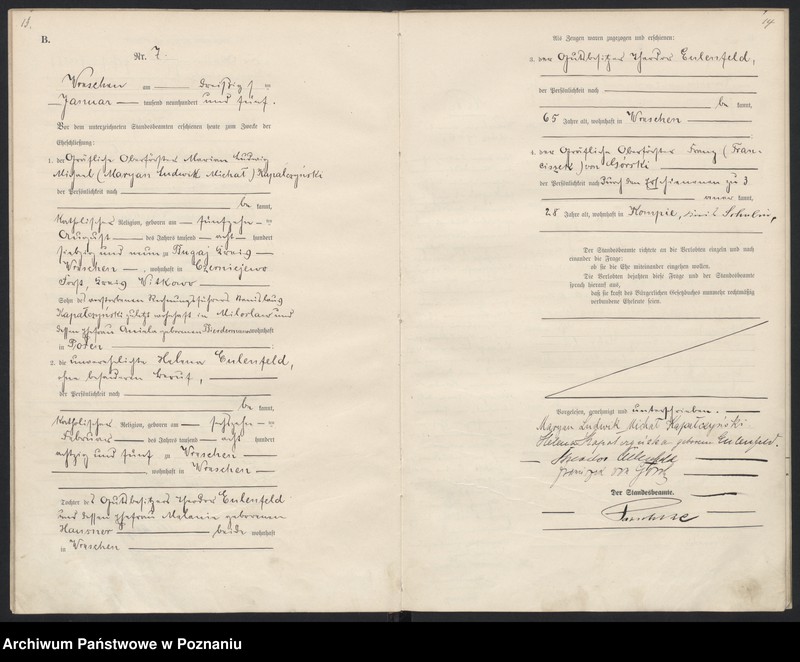 13.
B.
Nr. 7.
Wreschen am dreißig ten
Januar tausend neunhundert und fünf.
Vor dem unterzeichneten Standesbeamten erschienen heute zum Zwecke der
Eheschließung:
1. der Gräfliche Oberförster Marian Ludwig
Michael (Maryan Ludwik Michał) Kapałczyński
der Persönlichkeit nach
be kannt,
katholischer Religion, geboren am fünfzehn ten
August des Jahres tausend acht hundert
siebzig und neun zu Bugaj Kreis
Wreschen, wohnhaft in Czerniejewo
Forst, Kreis Witkowo
Sohn des verstorbenen Rechnungsführers Stanislaus
Kapałczyński zuletzt wohnhaft in Miloslaw und
dessen Ehefrau Aniela geborenen wohnhaft
in Posen
2. die unverehelichte Helena Eulenfeld,
ohne besonderen Beruf,
der Persönlichkeit nach
be kannt,
katholischer Religion, geboren am sechzehn ten
Februar des Jahres tausend acht hundert
achtzig und fünf zu Wreschen
, wohnhaft in Wreschen
Tochter des Gutsbesitzers Theodor Eulenfeld
und dessen Ehefrau Melanie geborenen
Hausner beide wohnhaft
in Wreschen
14
Als Zeugen waren zugezogen und erschienen:
3. der Gutsbesitzer Theodor Eulenfeld,
der Persönlichkeit nach
be kannt,
65 Jahre alt, wohnhaft in Wreschen
4. der Gräfliche Oberförster Franz (Fran-
ciszek) von Górski
der Persönlichkeit nach durch den Erschienenen zu 3
aner kannt,
28 Jahre alt, wohnhaft in Kreis Schubin,
Der Standesbeamte richtete an die Verlobten einzeln und nach
einander die Frage:
ob sie die Ehe miteinander eingehen wollen.
Die Verlobten bejahten diese Frage und der Standesbeamte
sprach hierauf aus,
daß sie kraft des Bürgerlichen Gesetzbuches nunmehr rechtmäßig
verbundene Eheleute seien.
Vorgelesen, genehmigt und unterschrieben.
Maryan Ludwik Michał Kapałczyński
Helena Kapałczyńska geborene Eulenfeld.
Theodor Eulenfeld
von Górski
Der Standesbeamte.
Archiwum Państwowe w Poznaniu